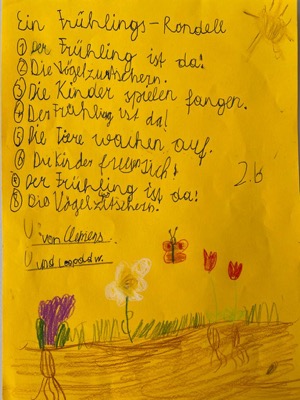 Ein Frühlings-Rondell
① Der Frühling ist da!
② Die Vögel zwitschern.
③ Die Kinder spielen fangen.
④ Der Frühling ist da!
⑤ Die Tiere wachen auf.
⑥ Die Kinder freuen sich!
⑦ Der Frühling ist da!
⑧ Die Vögel zwitschern.
2.b
von Clemens
und Leopold w.